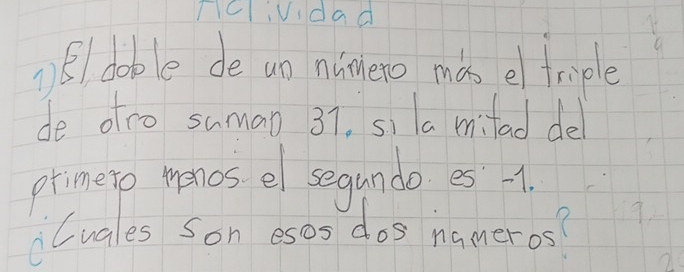 Actividad
1) El doble de un número más el triple
de otro suman 31. si la mitad del
primero menos el segundo es -1.
¿Cuales son esos dos números?